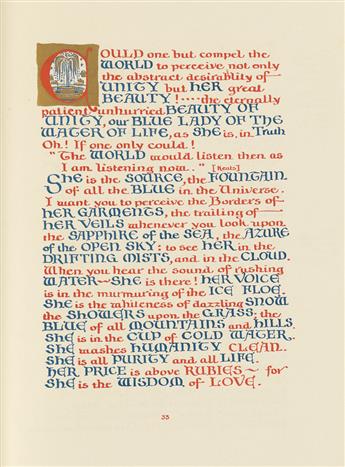 COULD one but compel the
WORLD to perceive not only
the abstract desirability of—
UNITY but HER great
BEAUTY!····the eternally
patient, unhurried BEAUTY OF
UNITY, our BLUE LADY OF THE
WATER OF LIFE, as SHE is, in Truth
Oh! If one only could!
"The WORLD would listen then as
I am listening now.." [Keats]
SHE is the SOURCE, the FOUNTAIN
of all the BLUE in the Universe.
I want you to perceive the Borders of—
HER GARMENTS, the trailing of—
HER VEILS whenever you look upon
the SAPPHIRE of the SEA, the AZURE
of the OPEN SKY: to see HER in the
DRIFTING MISTS, and in the CLOUD.
When you hear the sound of rushing
WATER~SHE is there! HER VOICE
is in the murmuring of the ICE FLOE.
SHE is the whiteness of dazzling SNOW
the SHOWERS upon the GRASS: the
BLUE of all MOUNTAINS and HILLS.
SHE is in the CUP of COLD WATER.
SHE washes HUMANITY CLEAN.
SHE is all PURITY and all LIFE.
HER PRICE is above RUBIES ~ for
SHE is the WISDOM of LOVE.
35